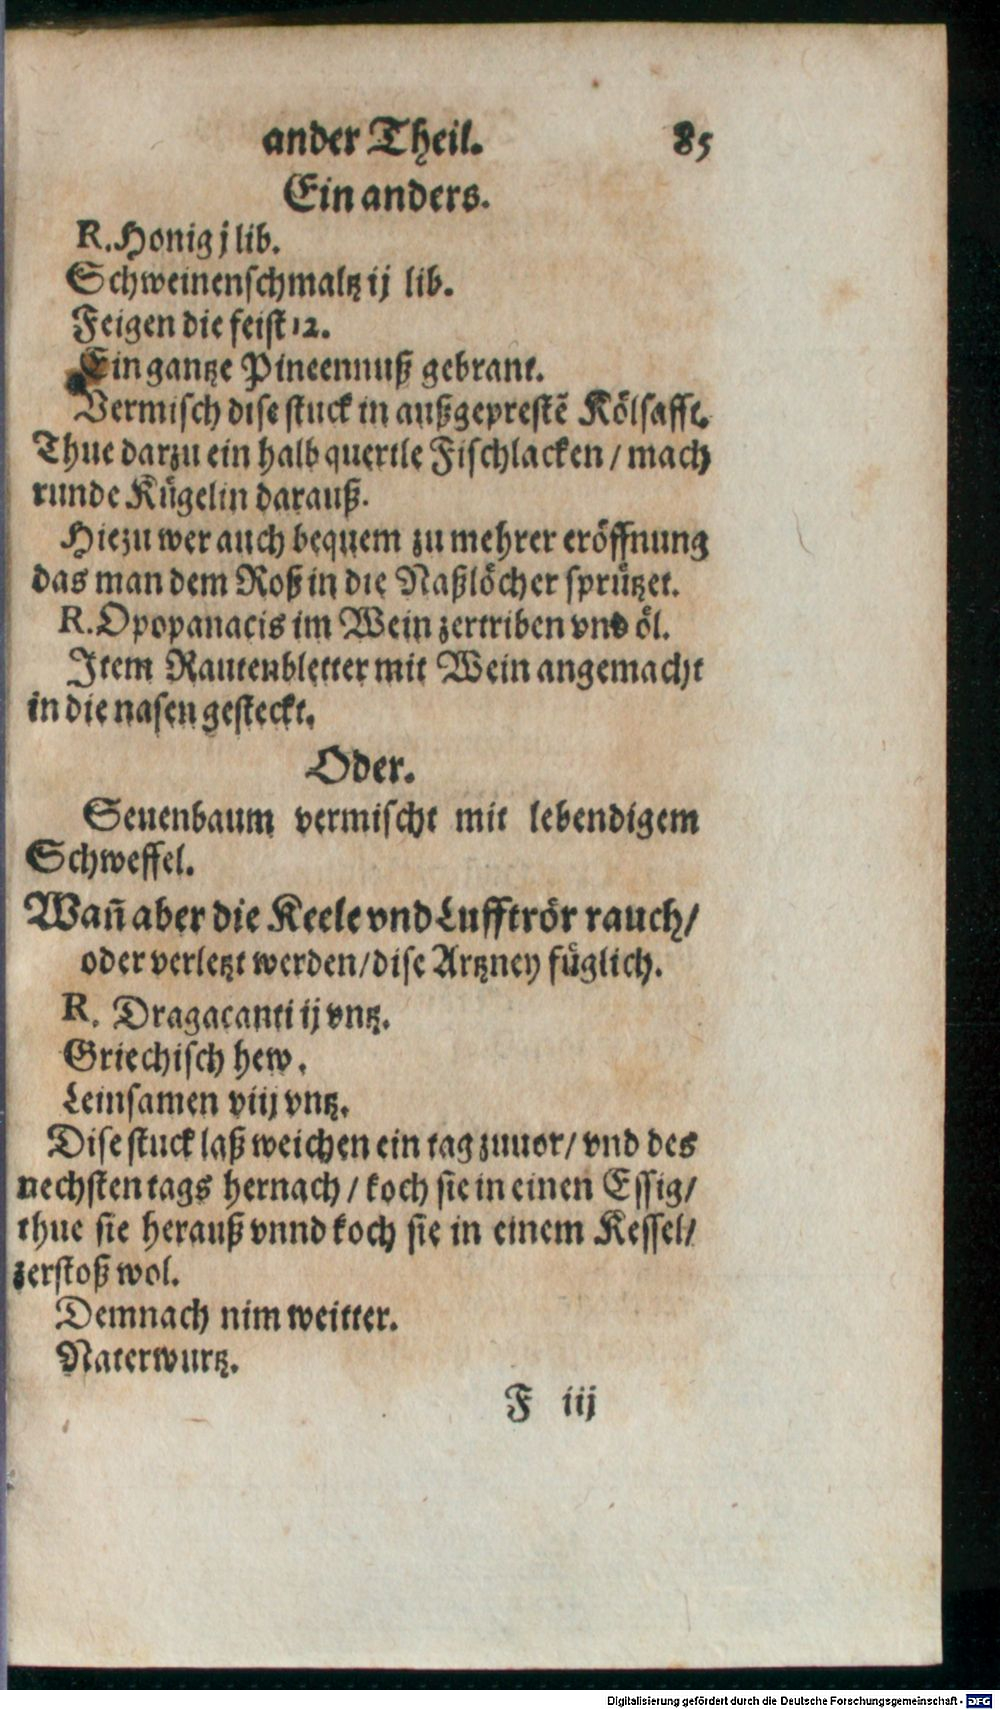 ander Theil. 85
Ein anders.
R. Honig j lib.
Schweinenschmaltz ij lib.
Feigen die feist 12.
Ein gantze Pineennuß gebrant.
Vermisch dise stuck in außgeprestẽ Kölsafft.
Thue darzu ein halb quertle Fischlacken / mach
runde Kügelin darauß.
Hiezu wer auch bequem zu mehrer eröffnung
das man dem Roß in die Naßlöcher sprützet.
R. Opopanacis im Wein zertriben vnd öl.
Item Rautenbletter mit Wein angemacht
in die nasen gesteckt.
Oder.
Seuenbaum vermischt mit lebendigem
Schweffel.
Wañ aber die Keele vnd Lufftrör rauch/
oder verletzt werden/ dise Artzney füglich.
R. Dragacanti ij vntz.
Griechisch hew.
Leinsamen viij vntz.
Dise stuck laß weichen ein tag zuuor/ vnd des
nechsten tags hernach / koch sie in einen Essig/
thue sie herauß vnnd koch sie in einem Kessel/
zerstoß wol.
Demnach nim weitter.
Naterwurtz.
F iij
Digitalisierung gefördert durch die Deutsche Forschungsgemeinschaft - DFG